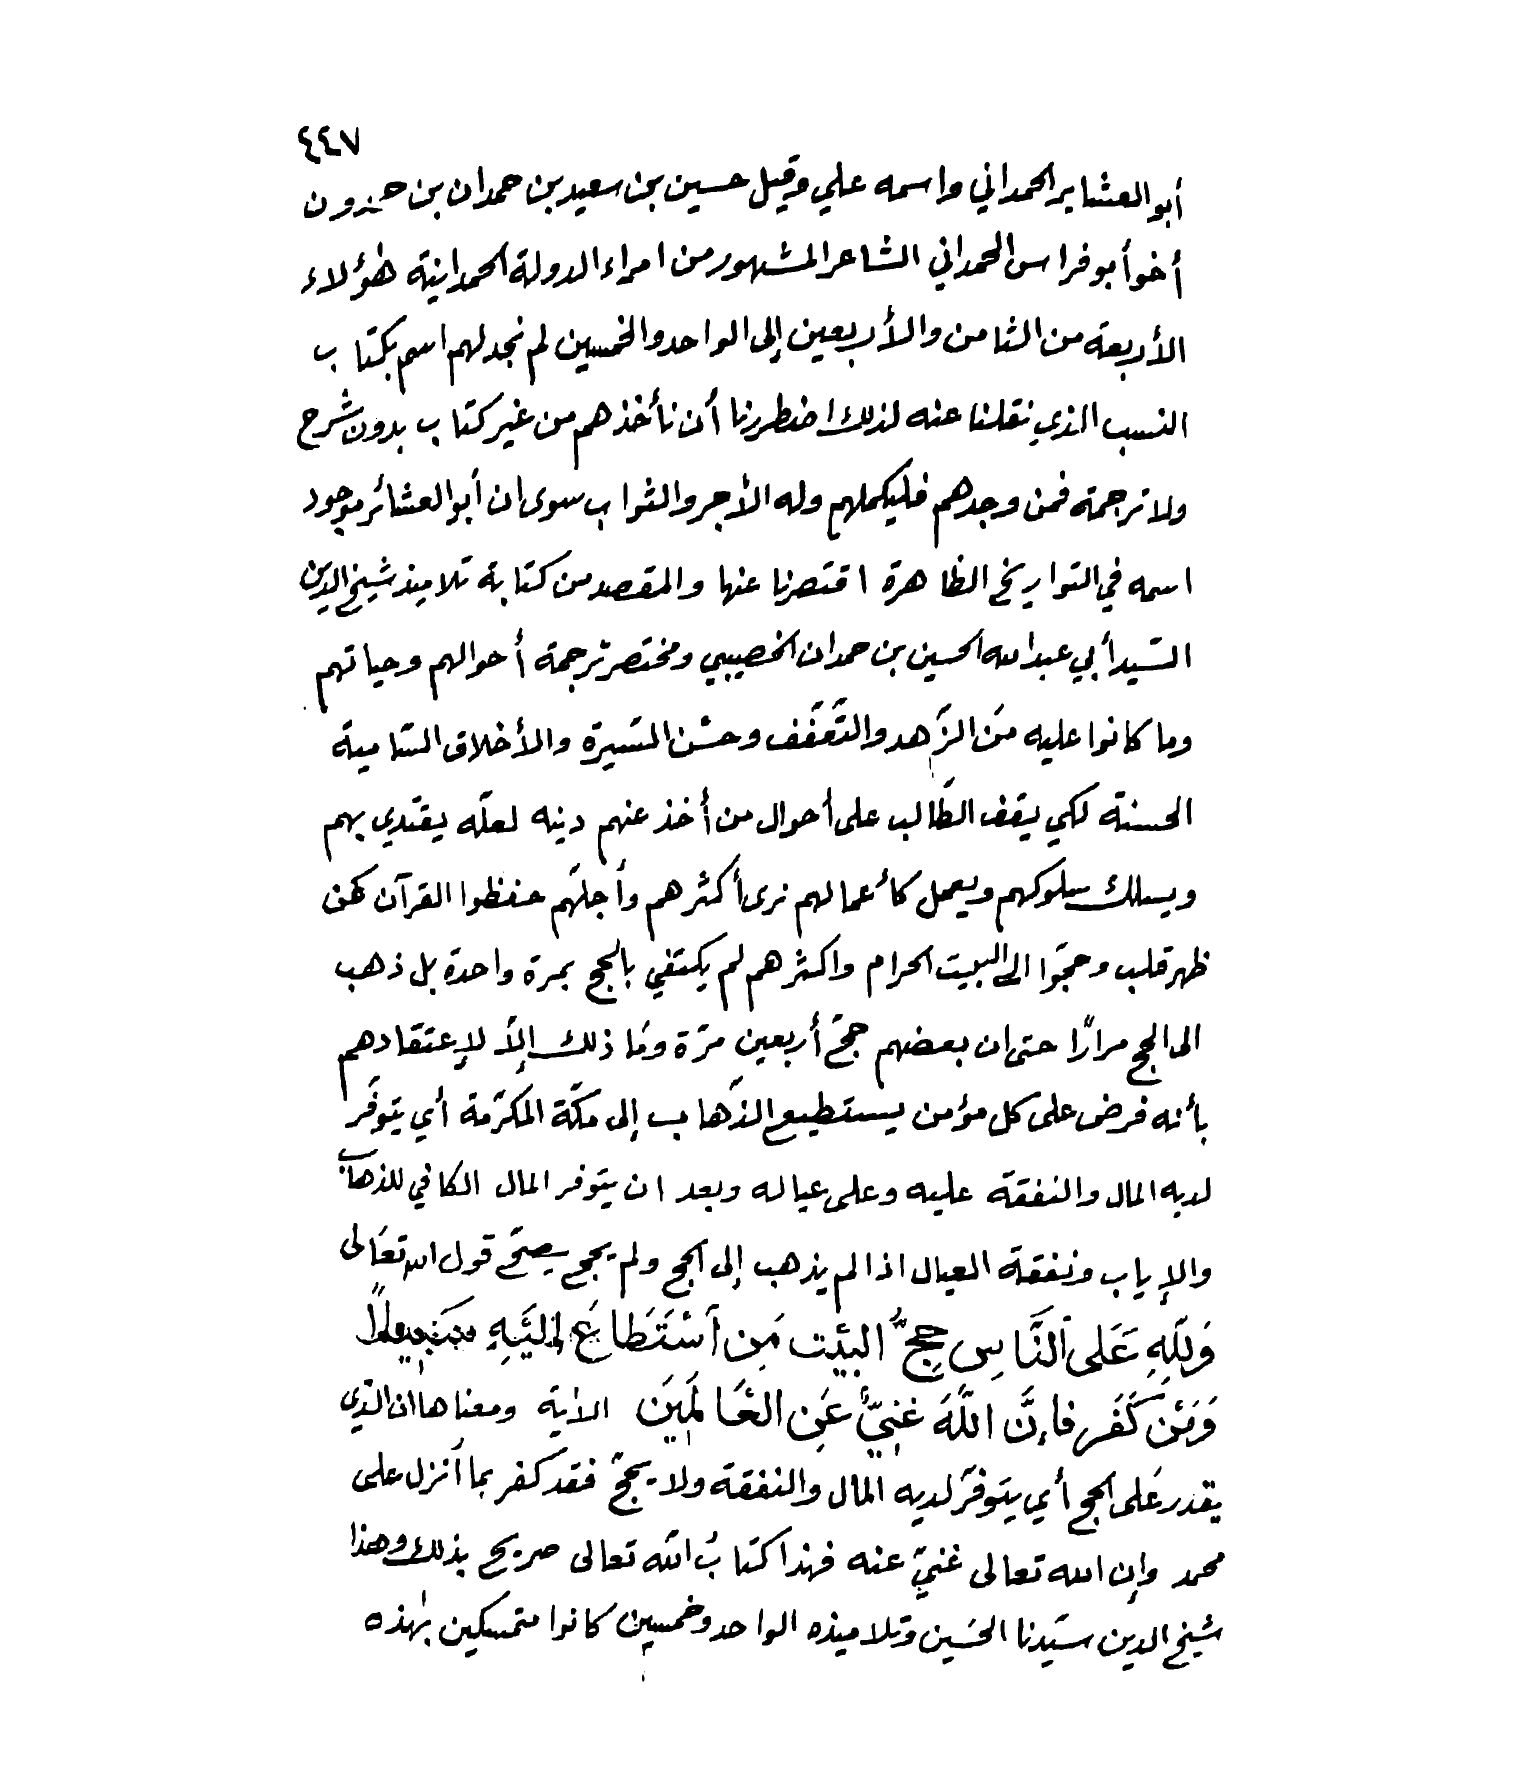 ٤٤٧
أبو العشاير الحمداني واسمه علي وقيل حسين بن سعيد بن حمدان بن حمدون
أخو أبو فراس الحمداني الشاعر المشهور من امراء الدولة الحمدانية هؤلاء
الأربعة من الثامن والأربعين إلى الواحد والخمسين لم نجد لهم اسم بكتاب
النسب الذي نقلنا عنه لذلك اضطررنا أن نأخذهم من غير كتاب بدون شرح
ولا ترجمة فمن وجدهم فليكملهم وله الأجر والثواب سوى ان أبو العشائر موجود
اسمه في التواريخ الظاهرة اقتصرنا عنها والمقصد من كتابة تلاميذ شيخ الدين
السّيد أبي عبد الله الحسين بن حمدان الخصيبي ومختصر ترجمة أحوالهم وحياتهم
وما كانوا عليه من الزّهد والتّعفّف وحسْن السّيرة والأخلاق السّامية
الحسنة لكي يقف الطّالب على أحوال من أخذ عنهم دينه لعلّه يقتدي بهم
ويسلك سلوكهم ويعمل كأعمالهم نرى أكثرهم وأجلّهم حفظوا القرآن كعن
ظهر قلب وحجّوا الى البيت الحرام واكثرهم لم يكتفي بالحج بمرة واحدة بل ذهب
الى الحج مرارًا حتى ان بعضهم حجّ أربعين مرّة وما ذلك إلاّ لإعتقادهم
بأنه فرض على كل مؤمن يستطيع الذّهاب إلى مكّة المكرّمة أي يتوفّر
لديه المال والنفقة عليه وعلى عياله وبعد ان يتوفر المال الكافي للذهاب
والإياب ونفقة العيال اذا لم يذهب إلى الحج ولم يحج يصحّ قول الله تعالى
وَلِلّهِ عَلَى النَّاسِ حِجُّ البَيْتِ مَنِ اسْتَطَاعَ إِلَيْهِ سَبِيلًا
وَمَنْ كَفَرَ فَإِنَّ اللَّهَ غَنِيٌّ عَنِ الْعَالَمِينَ الآية ومعناها ان الذي
يقدر على الحج أي يتوفّر لديه المال والنفقة ولا يحجّ فقد كفر بما أنزل على
محمد وإن الله تعالى غنيّ عنه فهذا كتابُ الله تعالى صريح بذلك وهذا
شيخ الدين سيّدنا الحسَين وتلاميذه الواحد وخمسين كانوا متمسكين بهذه